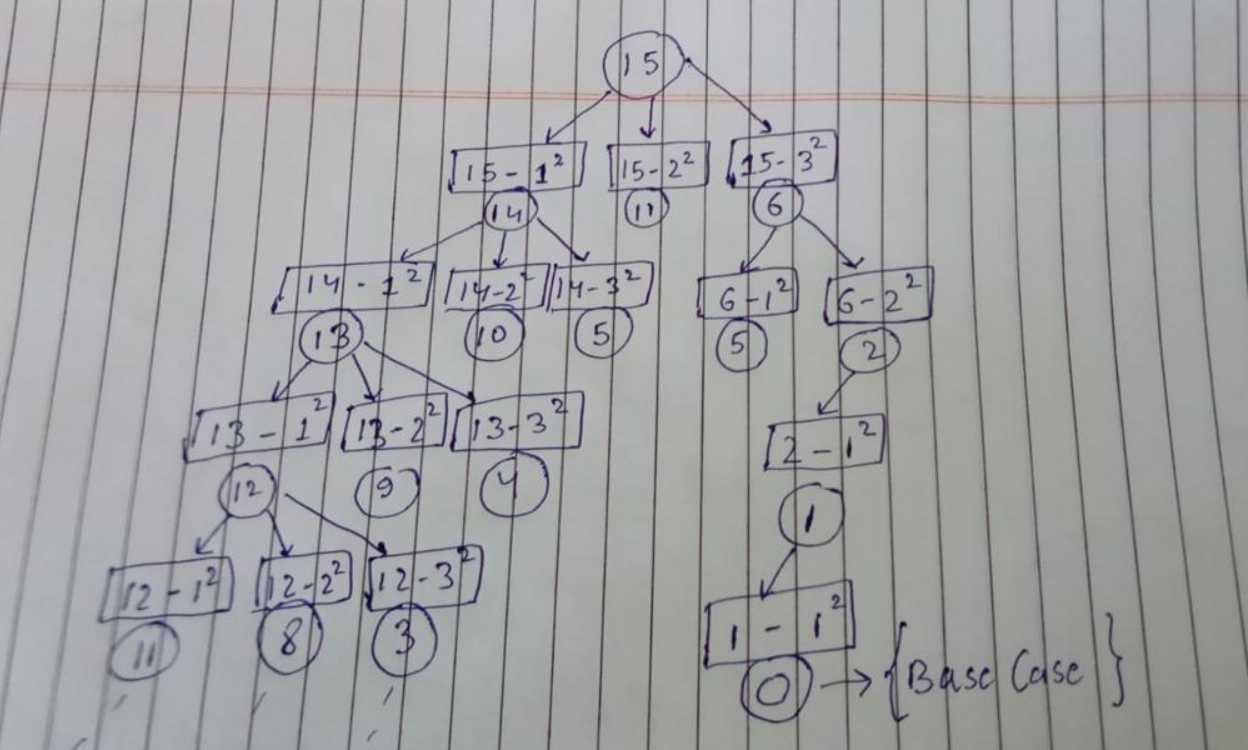 15
15 - 1² 15 - 2² 15 - 3²
14 11 6
14 - 1² 14 - 2² 14 - 3² 6 - 1² 6 - 2²
13 10 5 5 2
13 - 1² 13 - 2² 13 - 3² 2 - 1²
12 9 4 1
12 - 1² 12 - 2² 12 - 3² 1 - 1²
11 8 3 0 → {Base Case}